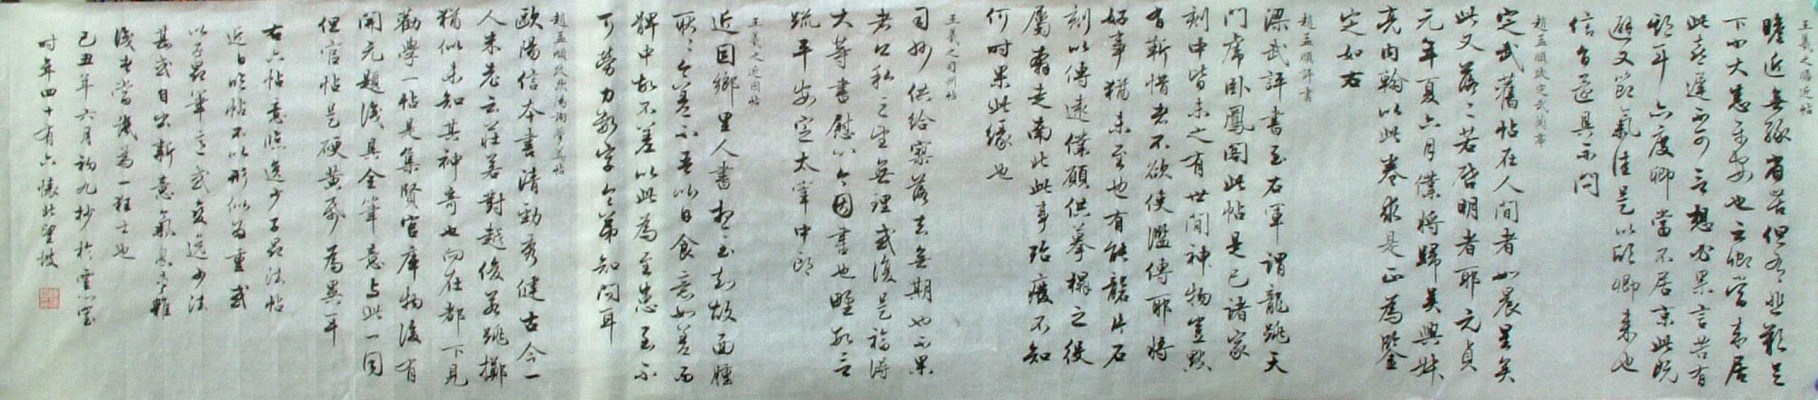 王羲之瞻近帖
瞻近無緣省苦但有悲歎足
下小大悉平安也云卿當來居
此喜遲不可言想必果言苦有
期耳亦度卿當不居京此既
避又節氣佳是以欣卿來也
信旨還具示問
趙孟頫跋定武蘭亭
定武舊帖在人間者如晨星矣
此又落落若啓明者耶元貞
元年夏六月僕將歸吳興叔
亮內翰以此卷求是正為鑒
定如右
趙孟頫評書
梁武評書至右軍謂龍跳天
門虎卧鳳閣此帖是已諸家
刻中皆未之有世間神物豈默
有靳惜者不欲使濫傳耶將
好事猶未至也有能礱片石
刻以傳遠僕願供摹搨之役
屬有走南北此事殆廢不知
何時果此緣也
王羲之司州帖
司州供給寥落去無期也不果
者公私之望無理或復是福得
大等書慰心今因書也野數言
疏平安定太宰中郎
王羲之近因帖
近因鄉里人書想至知故面腫
耿耿今差不吾比日食意如差而
髀中故不差以此為至患至不
可勞力數字令弟知問耳
趙孟頫跋歐陽詢夢奠帖
歐陽信本書清勁秀健古今一
人米老云莊若對越俊若跳擲
猶似未知其神奇也向在都下見
勸學一帖是集賢官庫物後有
開元題識具全筆意與此一同
但官帖是硬黄紙為異耳
右六帖意臨逸少子昂法帖
近日臨帖不以形似為重或
以子昂筆意或變逸少法
甚或自出新意氣息雅
淺者當譏為一狂士也
己丑年六月初九抄於雲堂
時年四十有六懷北望坡